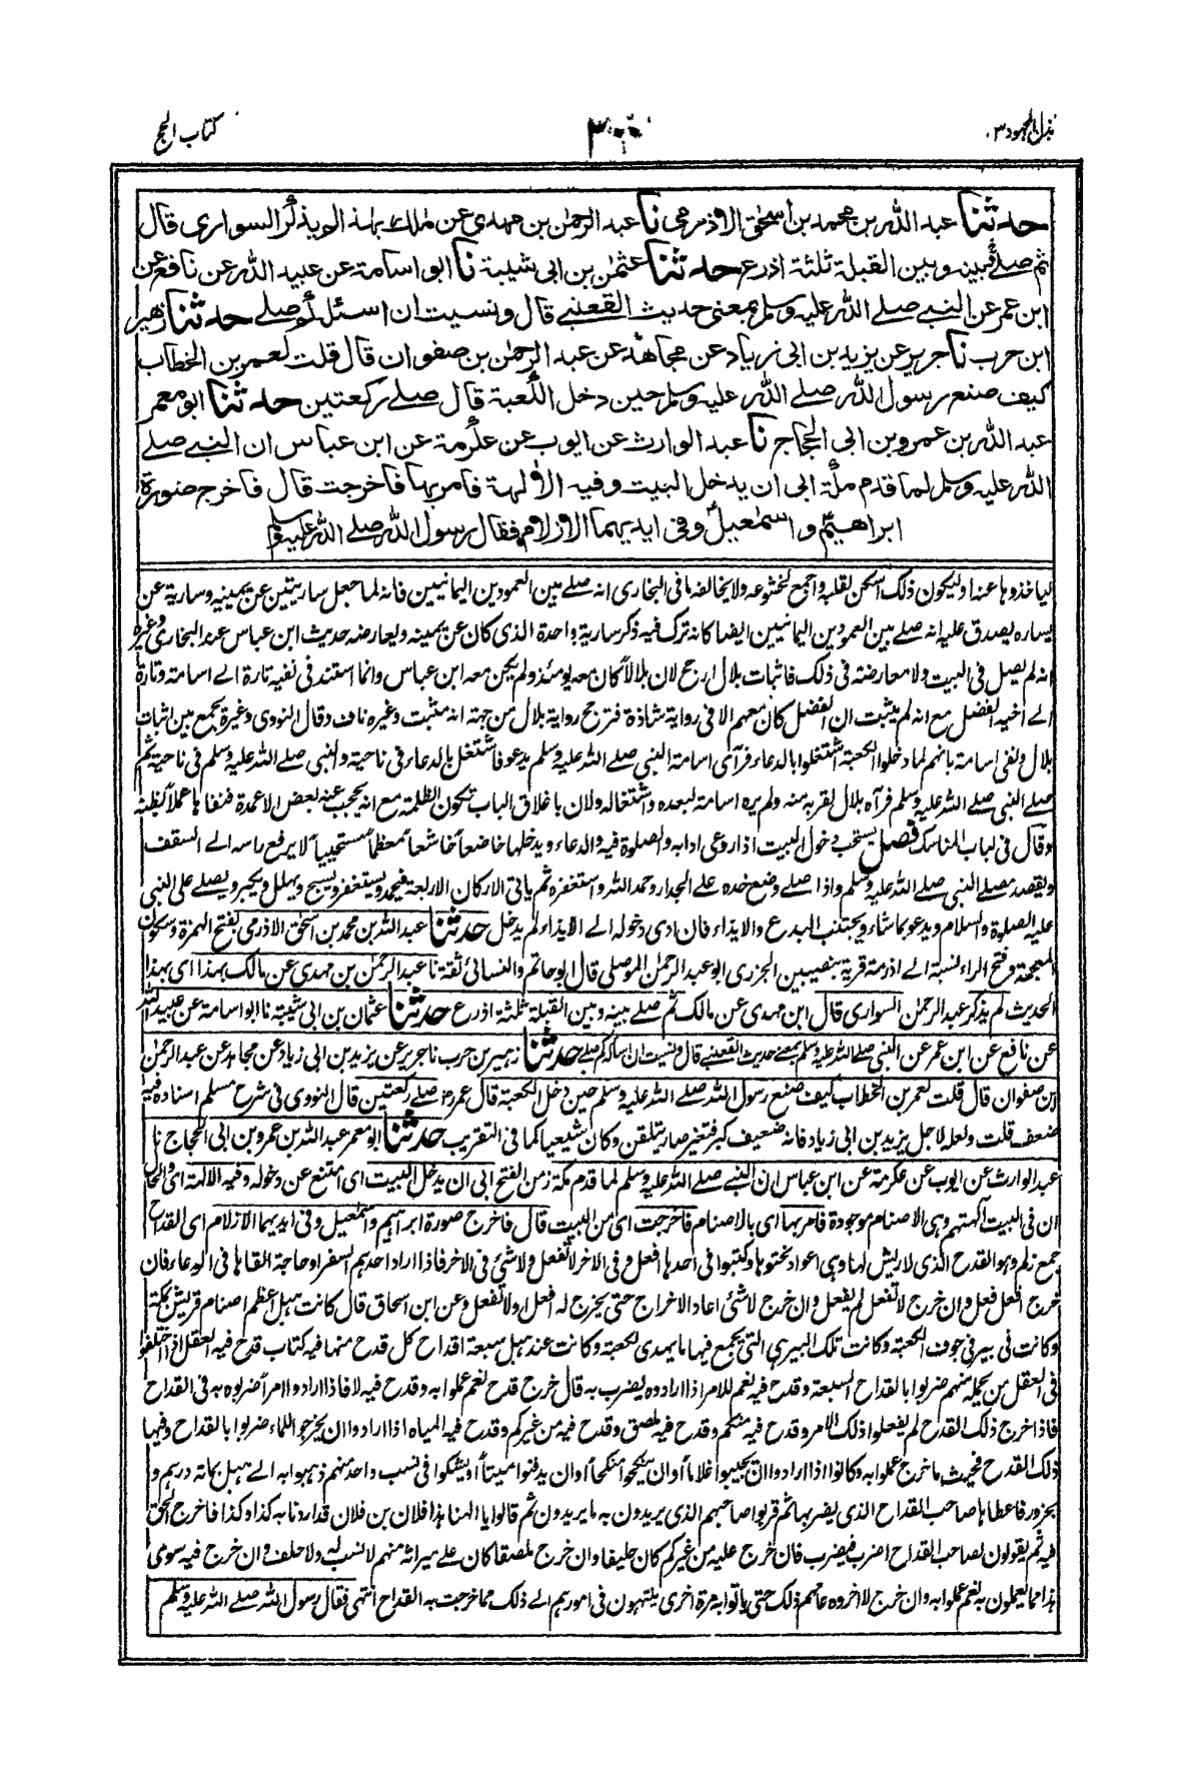 بذل المجهود ٣
كتاب الحج
حدثنا عبد الله بن محمد بن اسحٰق الاذرمي نا عبد الرحمٰن بن مهدي عن مٰلك بهذا لم يذكر السواري قال
ثم صلے وبينه وبين القبلة ثلثة اذرع حدثنا عثمٰن بن ابى شيبة نا ابو اسامة عن عبيد الله عن نافع عن
ابن عمر عن النبي صلے الله عليه وسلم بمعنى حديث القعنبي قال ونسيت ان اسئله كم صلے حدثنا زهير
ابن حرب نا جرير عن يزيد بن ابى زياد عن مجاهد عن عبد الرحمٰن بن صفوان قال قلت لعمر بن الخطاب
كيف صنع رسول الله صلے الله عليه وسلم حين دخل الكعبة قال صلے ركعتين حدثنا ابو معمر
عبد الله بن عمرو بن ابى الحجاج نا عبد الوارث عن ايوب عن عكرمة عن ابن عباس ان النبي صلے
الله عليه وسلم لما قدم مكة ابى ان يدخل البيت وفيه الاٰلهة فامر بها فاخرجت قال فاخرج صورة
ابراهيم واسمٰعيل وفى ايديهما الازلام فقال رسول الله صلے الله عليه وسلم
لياخذوها عنه او ليكون ذلك اسكن لقلبه واجمع لخشوعه ولا يخالفه ما فى البخارى انه صلے بين العمودين اليمانيين فانه لما جعل ساريتين عن يمينه وسارية عن
يساره يصدق عليه انه صلے بين العمودين اليمانيين ايضا كانه ترك فيه ذكر سارية واحدة الذى كان عن يمينه ويعارضه حديث ابن عباس عند البخارى وغيره
انه لم يصل فى البيت ولا معارضة فى ذلك فاثبات بلال ارجح لان بلالا كان معه يومئذ ولم يكن معه ابن عباس وانما استند فى نفيه تارة الے اسامة وتارة
الے اخيه الفضل مع انه لم يثبت ان الفضل كان معهم الا فى رواية شاذة فترجح رواية بلال من جهة انه مثبت وغيره ناف وقال النووى وغيرة يجمع بين اثبات
بلال ونفى اسامة بانهم لما دخلوا الكعبة اشتغلوا بالدعاء فرآى اسامة النبى صلے الله عليه وسلم يدعو فاشتغل بالدعاء فى ناحية والنبى صلے الله عليه وسلم فى ناحية ثم
صلے النبى صلے الله عليه وسلم فرآه بلال لقربه منه ولم يره اسامة لبعده واشتغاله ولان باغلاق الباب تكون الظلمة مع انه يحجب عنه بعض الاعمدة فنفاها عملا بظنه
وقال فى لباب المناسك فصل يستحب دخول البيت اذا روعى ادابه والصلوة فيه والدعاء ويدخلها خاضعا خاشعا معظما مستحييا لا يرفع راسه الے السقف
ويقصد مصلے النبى صلے الله عليه وسلم واذا صلے وضع خده علے الجدار وحمد الله واستغفره ثم ياتى الاركان الاربعة فيحمد ويستغفر ويسبح ويهلل ويكبر ويصلے على النبى
عليه الصلوة والسلام ويدعو بما شاء ويجتنب البدع والايذاء فان ادى دخوله الے الايذاء لم يدخل حدثنا عبد الله بن محمد بن اسحٰق الاذرمى بفتح الهمزة وسكون
المعجمة وفتح الراء نسبة الے اذرمة قرية بنصيبين الجزرى ابو عبد الرحمٰن الموصلى قال ابو حاتم والنسائى ثقة نا عبد الرحمٰن بن مهدى عن مالك بهذا اى بهذا
الحديث لم يذكر عبد الرحمٰن السوارى قال ابن مهدى عن مالك ثم صلے بينه وبين القبلة ثلثة اذرع حدثنا عثمان بن ابى شيبة نا ابو اسامة عن عبيد الله
عن نافع عن ابن عمر عن النبى صلے الله عليه وسلم بمعنے حديث القعنبے قال ونسيت ان اسأله كم صلے حدثنا زهير بن حرب نا جرير عن يزيد بن ابى زياد عن مجاهد عن عبد الرحمٰن
ابن صفوان قال قلت لعمر بن الخطاب كيف صنع رسول الله صلے الله عليه وسلم حين دخل الكعبة قال عمر صلے ركعتين قال النووى فى شرح مسلم اسناده فيه
ضعف قلت ولعله لاجل يزيد بن ابى زياد فانه ضعيف كبر فتغير صار يتلقن وكان شيعيا كما فى التقريب حدثنا ابو معمر عبد الله بن عمرو بن ابى الحجاج نا
عبد الوارث عن ايوب عن عكرمة عن ابن عباس ان النبے صلے الله عليه وسلم لما قدم مكة زمن الفتح ابى ان يدخل البيت اى امتنع عن دخوله وفيه الالهة اى والحال
ان فى البيت آلهتهم وهى الاصنام موجودة فامر بها اى بالاصنام فاخرجت اى من البيت قال فاخرج صورة ابراهيم واسمٰعيل وفى ايديهما الازلام اى القداح
جمع زلم وهو القدح الذى لا ريش لها وهى اعواد نحتوها وكتبوا فى احدها افعل وفى الاخر لا تفعل ولا شئ فى الاخر فاذا اراد احدهم السفر او حاجة القاها فى الوعاء فان
خرج افعل فعل وان خرج لا تفعل لم يفعل وان خرج لا شئ اعاد الاخراج حتى يخرج له افعل او لا تفعل وعن ابن اسحاق قال كانت هبل اعظم اصنام قريش بمكة
وكانت فى بير فى جوف الكعبة وكانت تلك البير هى التى يجمع فيها ما يهدى للكعبة وكانت عند هبل سبعة اقداح كل قدح منها فيه كتاب قدح فيه العقل اذا اختلفوا
فى العقل من يحمله منهم ضربوا بالقداح السبعة وقدح فيه نعم للامر اذا ارادوه يضرب به قال خرج قدح نعم عملوا به وقدح فيه لا فاذا ارادوا امرا ضربوه به فى القداح
فاذا خرج ذلك القدح لم يفعلوا ذلك الامر وقدح فيه منكم وقدح فيه ملصق وقدح فيه من غيركم وقدح فيه المياه اذا ارادوا ان يخرجوا للماء ضربوا بالقداح وفيها
ذلك القدح فحيث ما خرج عملوا به وكانوا اذا ارادوا ان يجيبوا غلاما او ان ينكحوا منكحا او ان يدفنوا ميتا او يشكوا فى نسب واحد منهم ذهبوا به الے هبل بمائة درهم و
بجزور فاعطاها صاحب القداح الذى يضربها ثم قربوا صاحبهم الذى يريدون به ما يريدون ثم قالوا يا الهنا هذا فلان بن فلان قد اردنا به كذا وكذا فاخرج الحق
فيه ثم يقولون لصاحب القداح اضرب فيضرب فان خرج عليه من غيركم كان حليفا وان خرج ملصقا كان علے ميراثه منهم لا نسب له ولا حلف وان خرج فيه سوى
هذا مما يعملون به نعم عملوا به وان خرج لا اخروه عامهم ذلك حتى ياتوا به مرة اخرى ينتهون فى امورهم الے ذلك مما خرجت به القداح انتهى فقال رسول الله صلے الله عليه وسلم